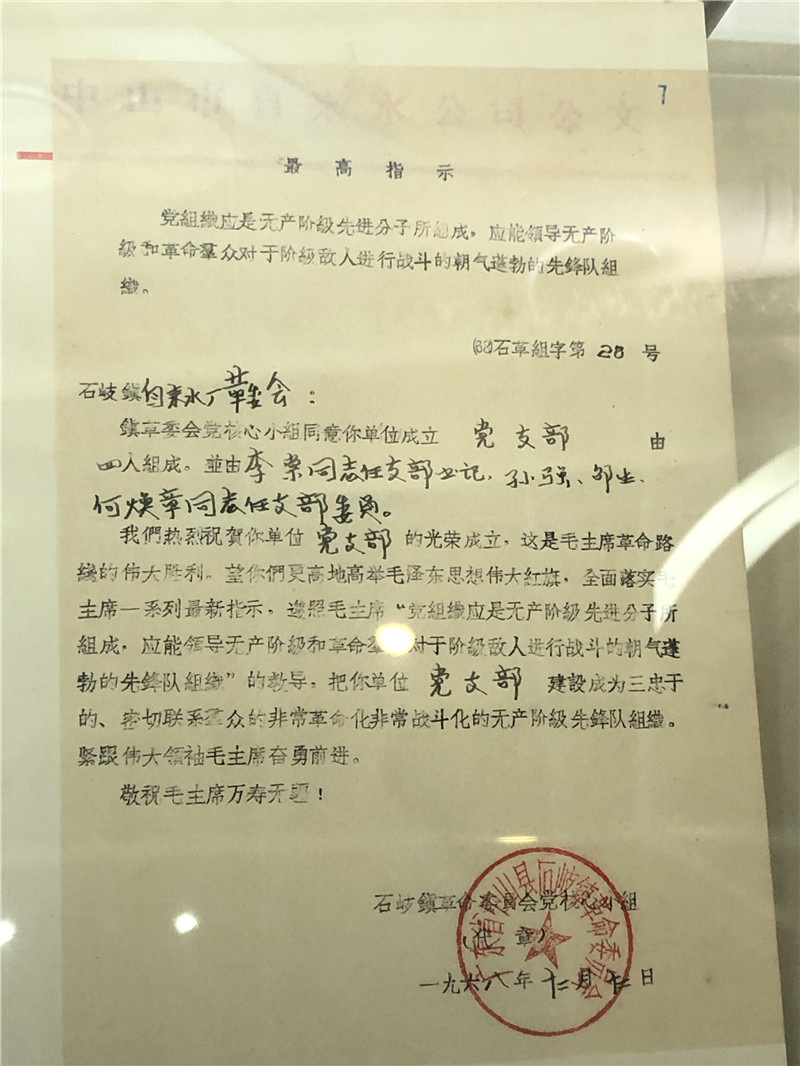 7
文公司公水来自市山中
最高指示
党組織应是无产阶級先进分子所組成，应能領导无产阶
級和革命羣众对于阶級敌人进行战斗的朝气蓬勃的先鋒队組
織。
(68)石革組字第 28 号
石岐鎮自来水厂革委会：
鎮革委会党核心小組同意你单位成立 党支部 由
四人組成。並由李荣同志任支部书记，孙强、邹
何焕章同志任支部委员。
我們热烈祝賀你单位 党支部 的光荣成立，这是毛主席革命路
綫的伟大胜利。望你們更高地高举毛泽东思想伟大紅旗，全面落实毛
主席一系列最新指示，遵照毛主席“党組織应是无产阶級先进分子所
組成，应能領导无产阶級和革命羣 对于阶級敌人进行战斗的朝气蓬
勃的先鋒队組織”的教导，把你单位 党支部 建設成为三忠于
的、密切联系羣众的非常革命化非常战斗化的无产阶級先鋒队組織。
緊跟伟大領袖毛主席奋勇前进。
敬祝毛主席万寿无疆！
石岐鎮革命委員会党核心小組
（代章）
广东省中山县石岐鎮革命委员会
一九六八年十二月 日